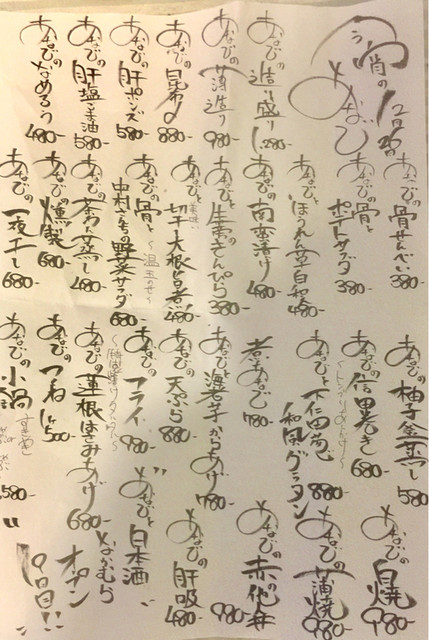 今宵の
あなご
あなごの造り盛り 1,280-
あなごの薄造り 980-
あなごの昆布〆 880-
あなごの肝ポンズ 580-
あなごの肝塩ごま油 580-
あなごのなめろう 480-
あなごの骨せんべい 380-
あなごの骨とポテトサラダ 380-
あなごとほうれん草白和え 480-
あなごの南蛮漬け 480-
あなごと生姜のきんぴら 380-
あなごと美味い切干大根旨煮 480-
あなごの骨と中村さんちの野菜サラダ 680-
～温玉のせ～
あなごの茶わん蒸し 480-
あなごの燻製 680-
あなごの一夜干し 680-
あなごの柚子釜蒸し 580-
あなごの信田巻き 680-
あなごと下仁田葱 和風グラタン 880-
煮あなご 780-
あなごと海老芋からあげ 780-
あなごの天ぷら 880-
あなごのフライ 980-
あなごの蓮根はさみあげ 680-
あなごのつくね 1ヶ500
あなごの小鍋 すきやき 1,580-
あなごの白焼 980-
あなごの蒲焼 980-
あなごの 980-
あなごの肝吸 480-
"あなごと日本酒
なかむら"
オープン
9日目!!